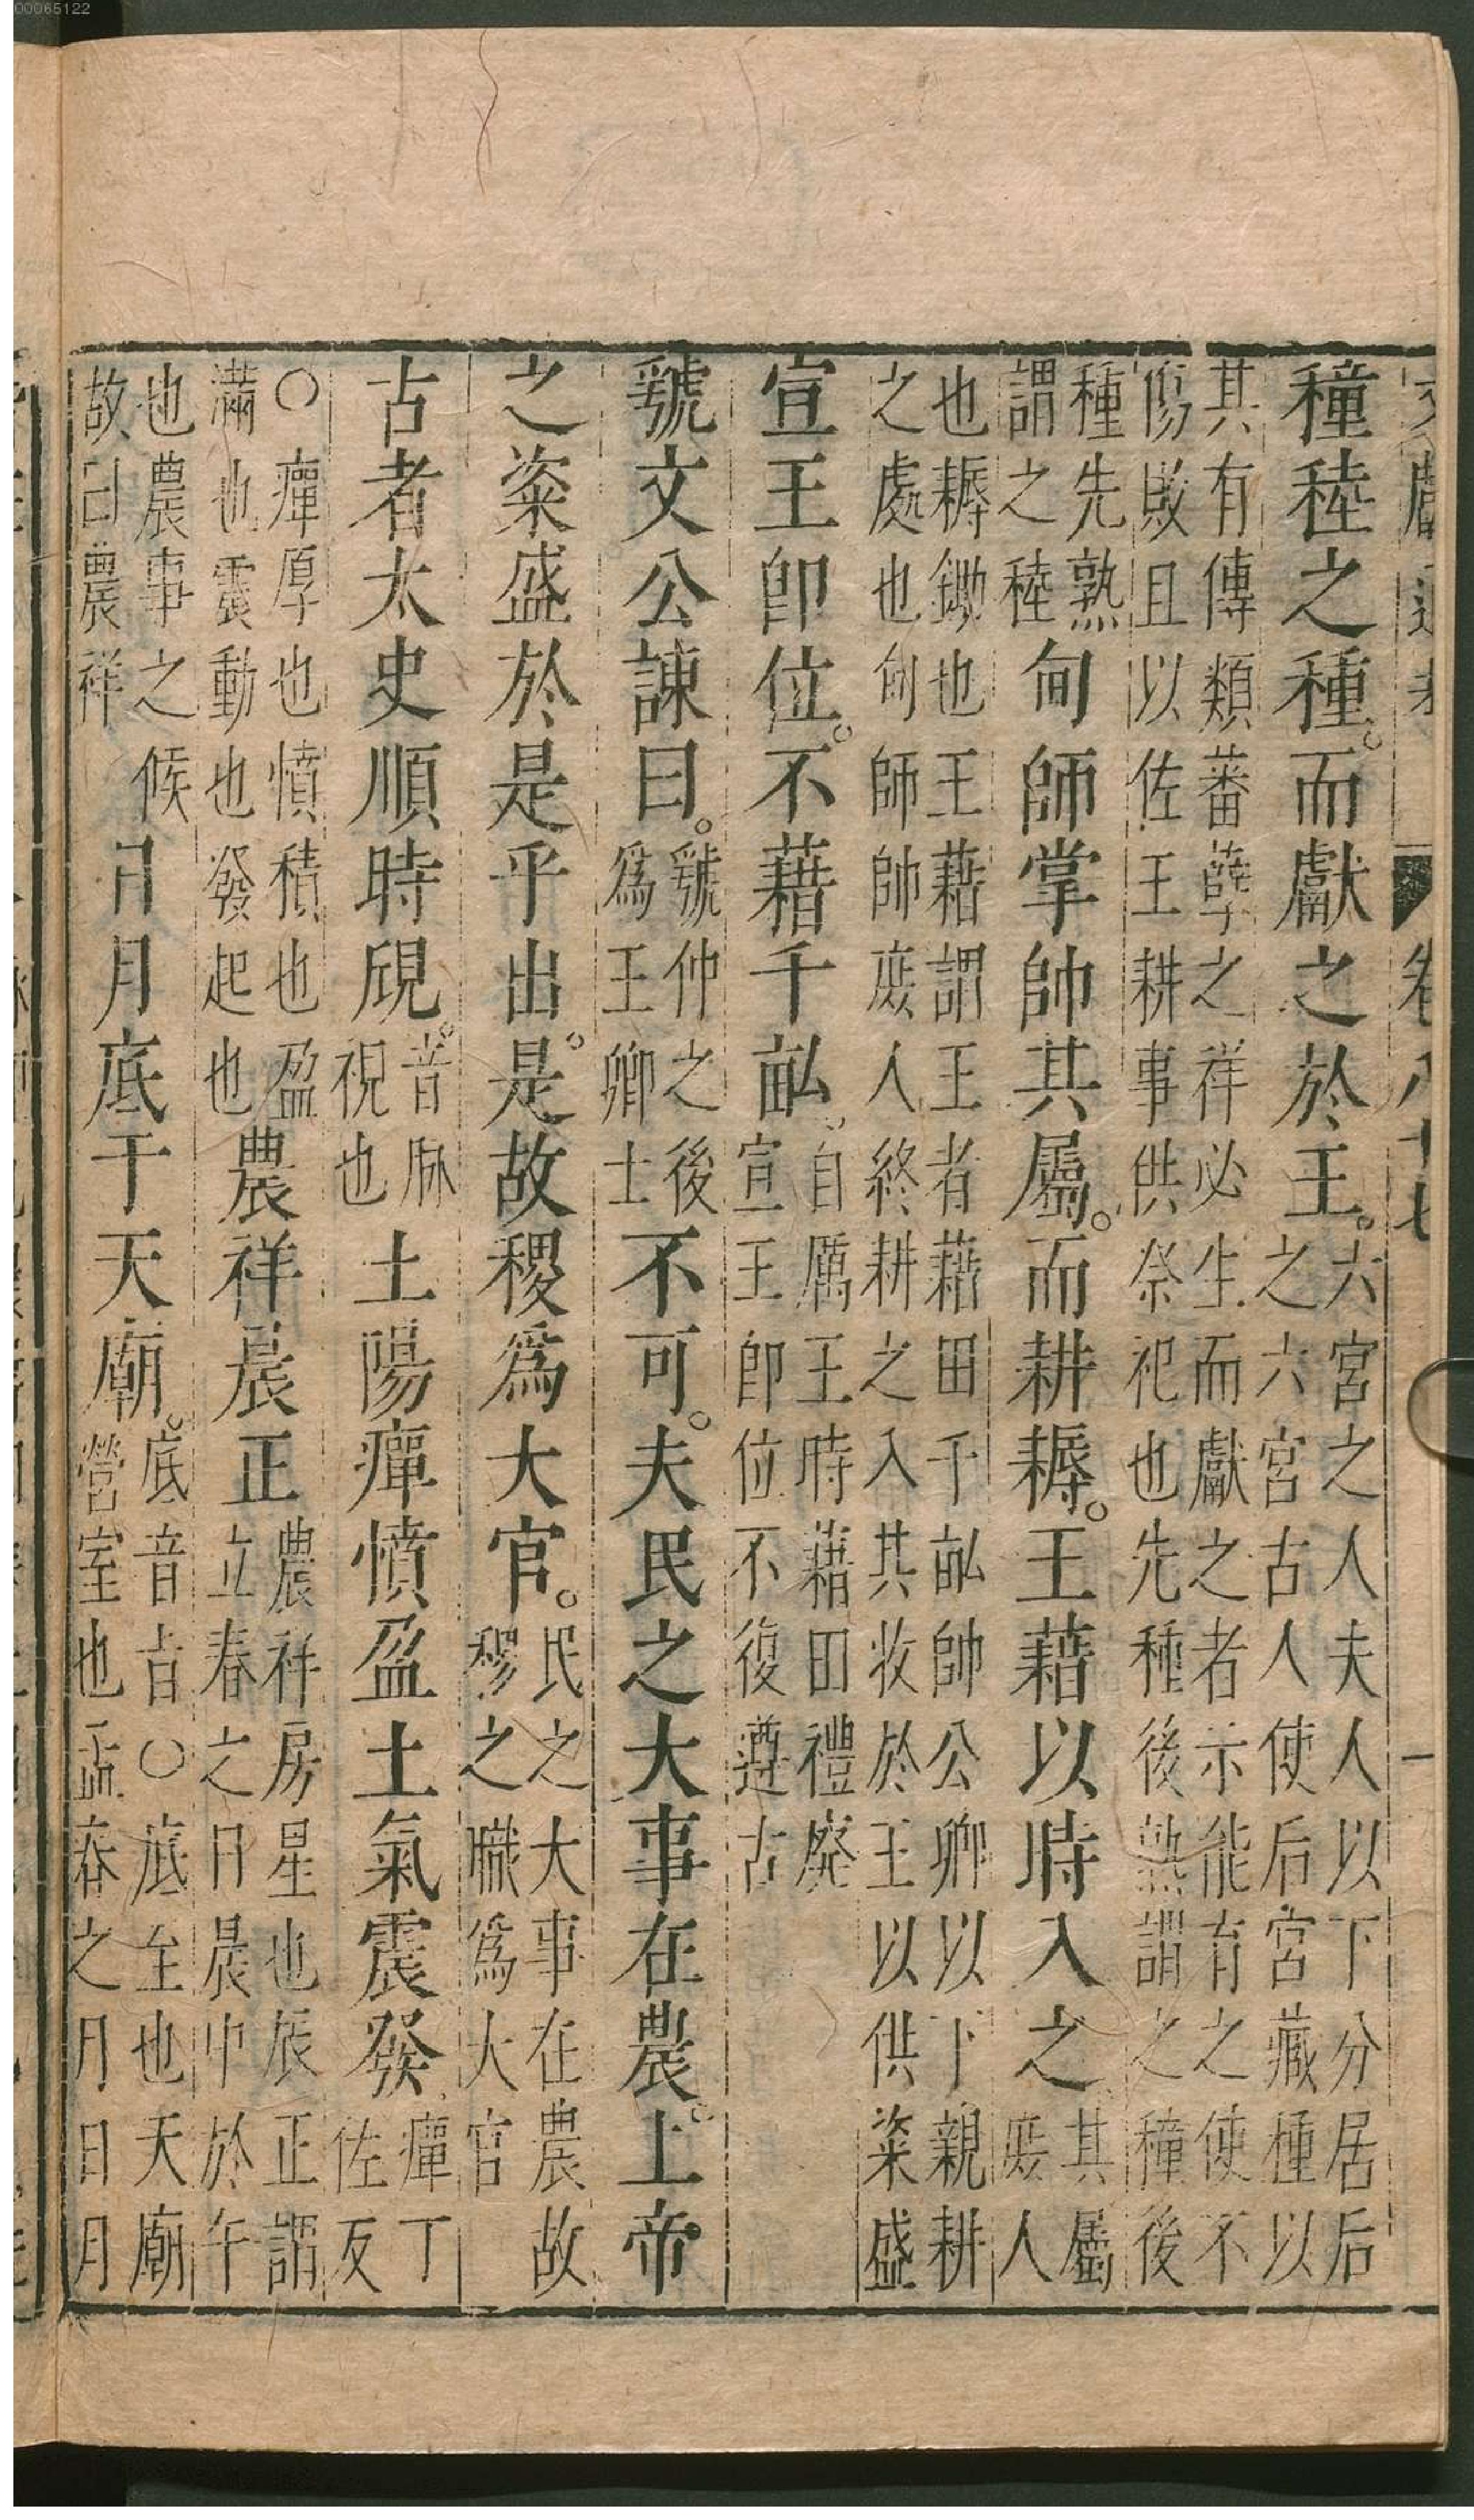 文獻通考 卷八十七 一
穜稑之種。而獻之於王。六宮之人夫人以下分居后之六宮古人使后宮藏種以
其有傳類蕃孳之祥必生而獻之者示能育之使不傷敗且以佐王耕事供祭祀也先種後熟謂之穜後
種先熟謂之稑甸師掌帥其屬。而耕耨。王藉以時入之其屬庶人
也耨鋤也王藉謂王者藉田千畝帥公卿以下親耕之處也甸師帥庶人終耕之入其收於王以供粢盛
宣王卽位。不藉千畝。自厲王時藉田禮廢宣王卽位不復遵古
虢文公諫曰。虢仲之後爲王卿士不可。夫民之大事在農。上帝
之粢盛於是乎出。是故稷爲大官。民之大事在農故稷之職爲大官
古者太史順時覛。音脉視也土陽癉憤盈土氣震發癉丁佐反
○癉厚也憤積也盈滿也震動也發起也農祥晨正農祥房星也辰正謂立春之日晨中於午
也農事之候故曰農祥日月底于天廟。底音旨○底至也天廟營室也孟春之月日月